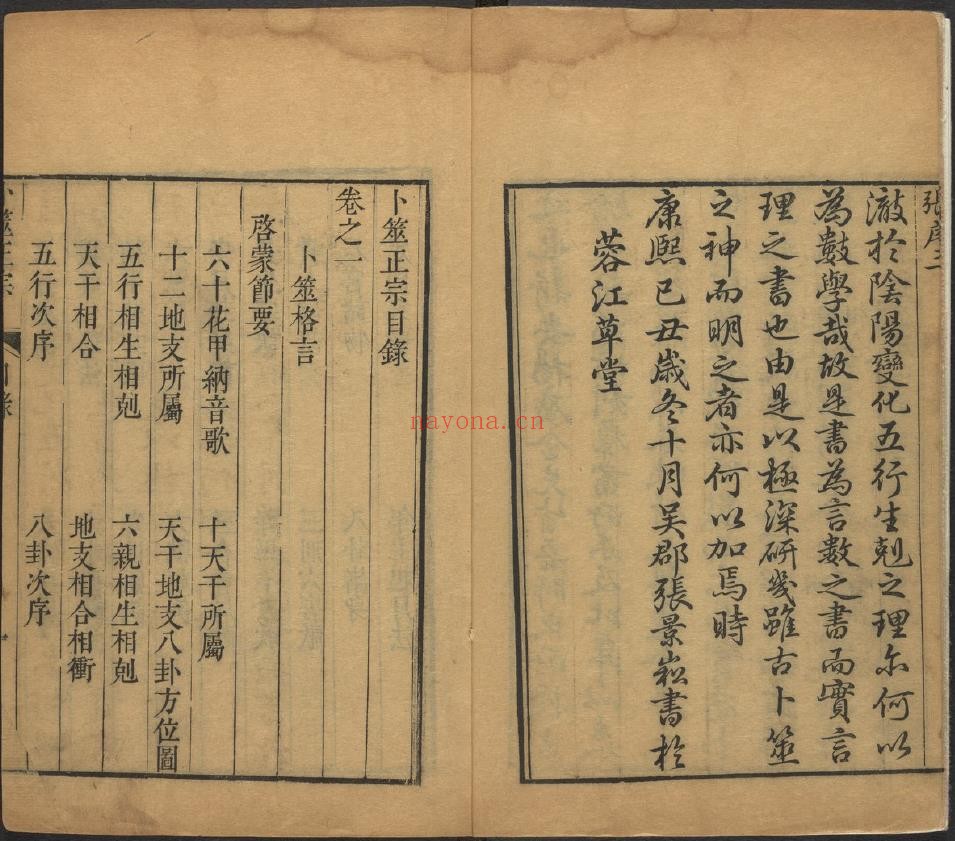 張序三
澈於陰陽變化五行生剋之理亦何以
為數學哉故是書為言數之書而實言
理之書也由是以極深研幾雖古卜筮
之神而明之者亦何以加焉時
康熙己丑歲冬十月吳郡張景崧書於
蓉江草堂
卜筮正宗目錄
卷之一
卜筮格言
啓蒙節要
六十花甲納音歌 十天干所屬
十二地支所屬 天干地支八卦方位圖
五行相生相剋 六親相生相剋
天干相合 地支相合相衝
五行次序 八卦次序
nayona.cn